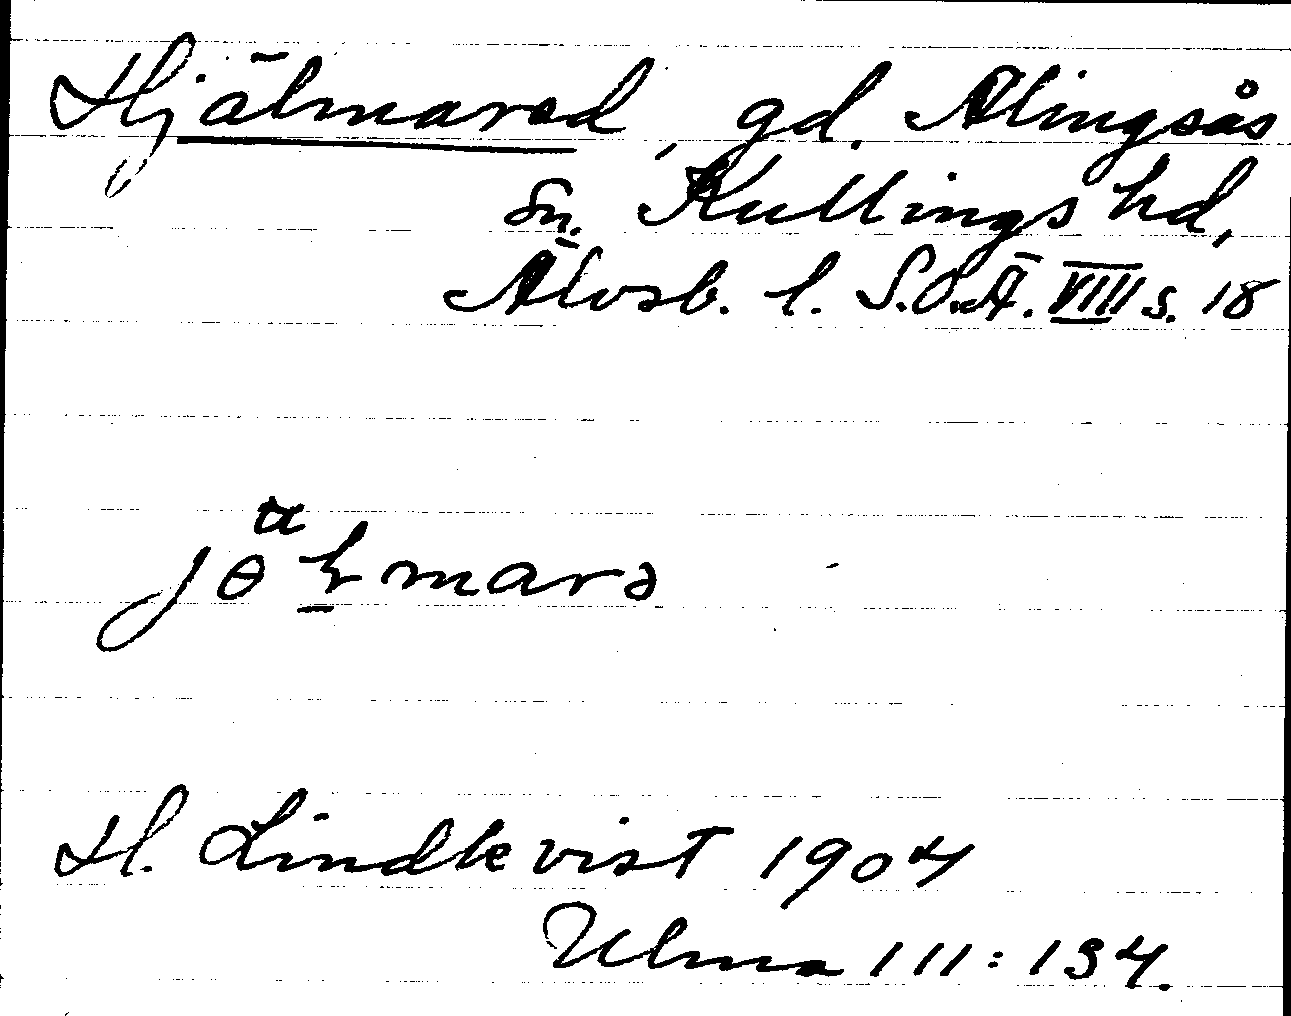 Hjälmared, gd. Alingsås
sn. Kullings hd,
Älvsb. l. S.O.Ä. VIII s. 18
H. Lindkvist 1904
Ulma 111:134.